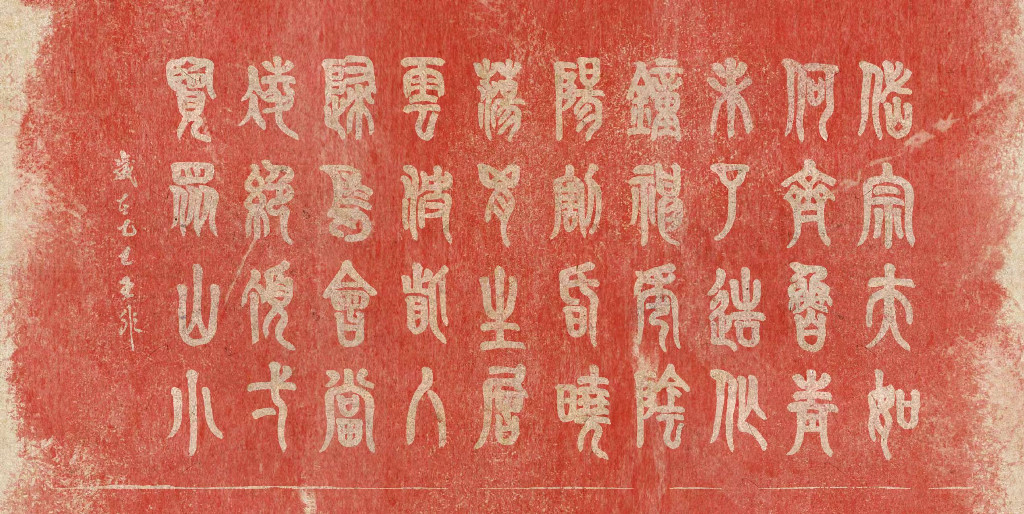 岱宗夫如
何齊魯青
未了造化
鐘神秀陰
陽割昏曉
蕩胸生層
雲決眥入
歸鳥會當
凌絕頂弌
覽眾山小
歲